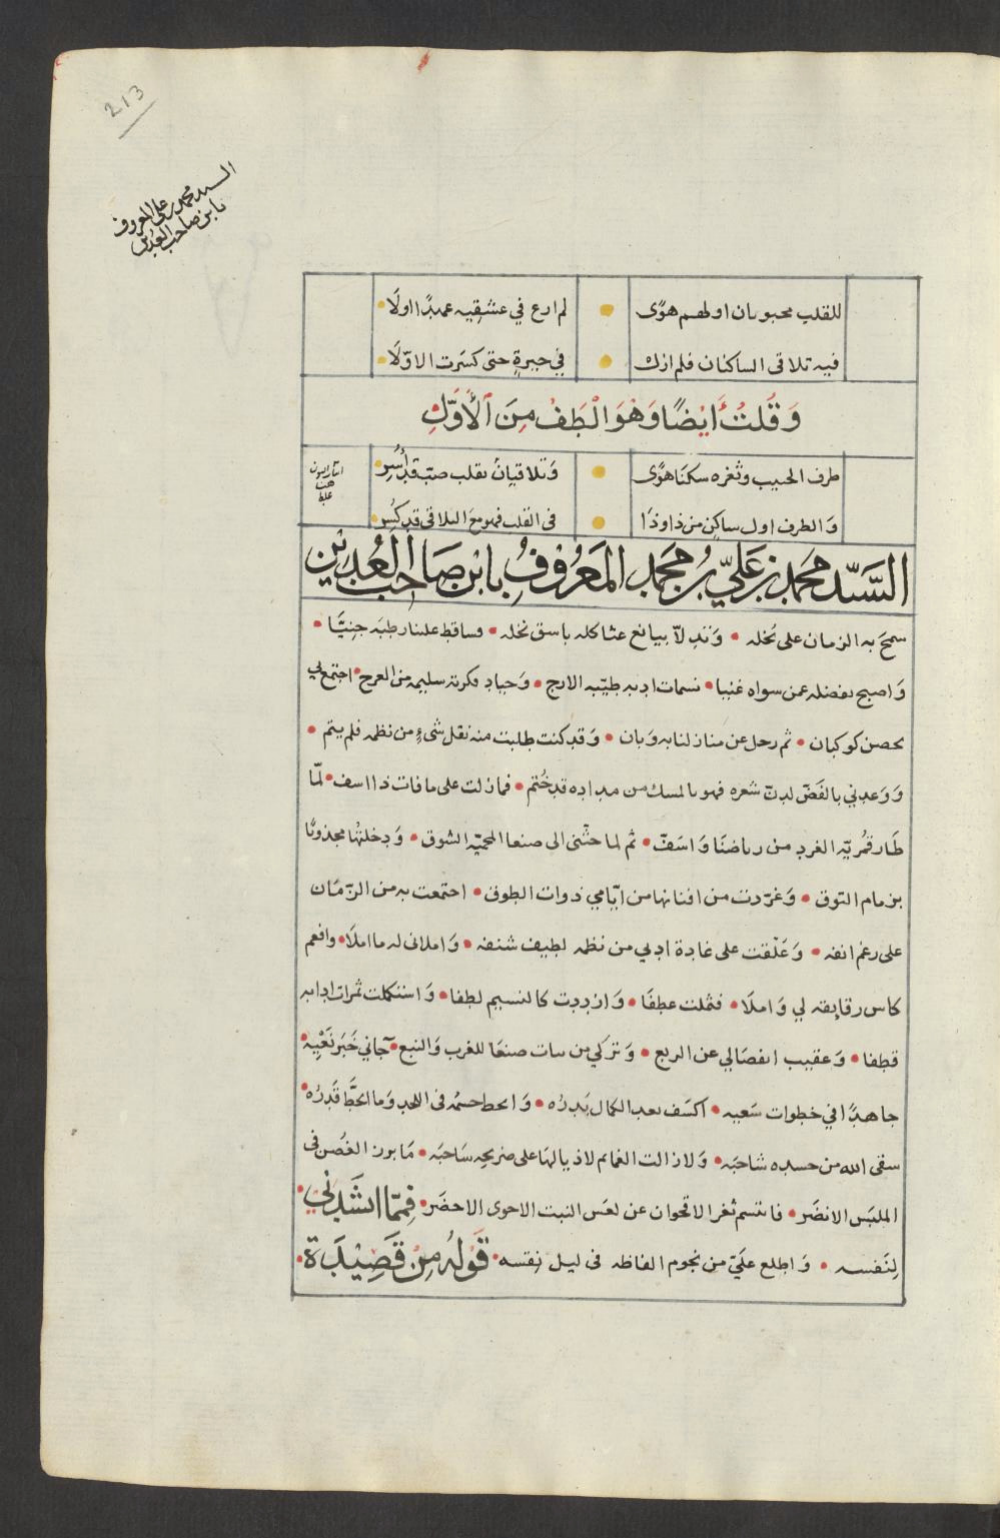 213
السيد محمد بن علي المعروف
بابن صاحب العدين
للقلب محبوبان اولهم هوًى • لم ارع في عشقيه عهدًا اولَا
فيه تلاقى الساكنان فلم ازل • في حيرةٍ حتى كسَرت الاوّلَا
وَقُلتُ أَيْضًا وَهْوَ الْطَفْ مِنَ ٱلْأَوَّلِ
طرف الحبيب وثغره سكنَا هوًى • وَتلاقيانُ بقلب صبّ قد أُسِر
وَالطرف اول ساكِن من ذا وذَا • فى القلب فهو معَ التلاقى قد كُسِر
السَّيّد محَمد بن عَليّ بن محَمد المَعرُوفُ بابْن صَاحب العُدين
سمحَ به الزمان على بُخله • وَتدلّا بيانع عثاكله باسق نخله • وساقط علينا رطبَه جنِيَّا •
وَاصبح بفضله عمن سواه غنيا • نسمات ادبه طيّبه الارج • وَجياد فكرته سليمه من العرج • اجتمع بي
بحصن كوكبان • ثم رحل عن منازلنا به وَبان • وَقد كنت طلبت منه نقل شىءٍ من نظمه فلم يتم •
وَوَعدني بالفَضّ لدنّ شعره فهو بالمسك من مداده قد خُتم • فما زلت على ما فات ذا اسف • لمّا
طَار قُمْريّه الغرد من رياضنَا وَاسَفّ • ثم لما حثّنى الى صنعا المحميّه الشوق • وَدخلتُها مجذوبًا
بزمام التوق • وَغرّدت من افنانها من ايّامي ذوات الطوق • اجتمعت به من الزمَان
على رغم انفه • وَعَلّقت على غادة ادبي من نظمه لطيف شنفه • وَاملانى له ما املَا • وافعم
كاس رقايقه لي وَاملَا • فثملت عطفًا • وَازددت كالنسيم لطفا • وَاستكملت ثمرات ادابه
قطفا • وَعقيب انفصَالي عن الربع • وَتركي من بنات صنعَا للغرب وَالنبع • جَاني خَبَر نَعْيِه •
جاهدًا في خطوات سَعيه • اكسَف بعد الكمال بَدرُه • وَانحط جسمُه فى اللحد وَما انحَطّ قَدرُه •
سقى الله من جسده شاحبَه • وَلا زالت الغمايم لاذيالهَا على ضريحِه سَاحبَه • مَا برز الغُصن فى
الملبَس الانضَر • فابتسم ثغر الاقحوان عن لعَس النبت الاحوى الاخضَر • فِمّا انشَدني •
لِنَفسه • وَاطلع علَيّ من نجوم الفاظه فى ليل نِقسه • قَولُه مِنْ قَصِيْدَة •